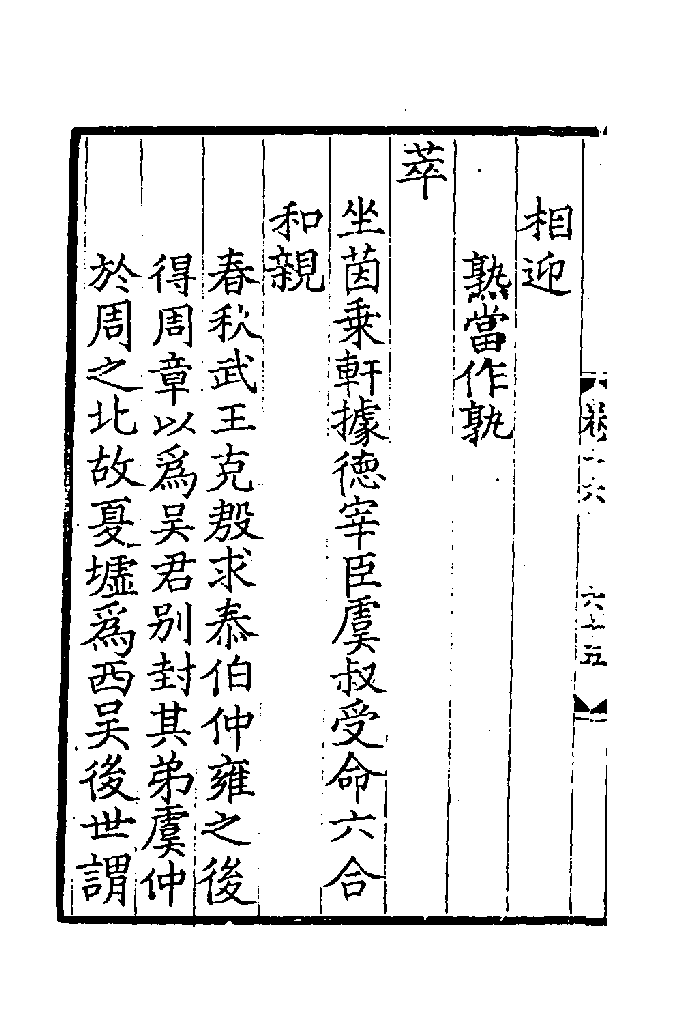 卷十六 六十五
相迎
熟當作孰
萃
坐茵乗軒據德宰臣虞叔受命六合
和親
春秋武王克殷求泰伯仲雍之後
得周章以為吳君别封其弟虞仲
於周之北故夏墟為西吴後世謂